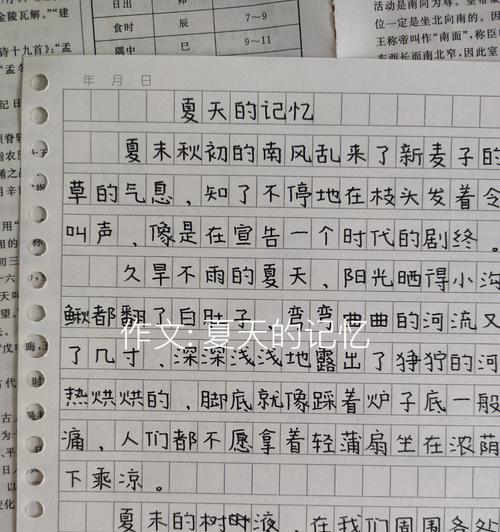 金陵瓦解。”“建
诗十九首》:“孟
日出 卯
食时 辰 7～9
隅中 巳 9～11
活动是南向与北
位一定是坐北向南的。因此
王称帝叫作“南面”,称臣
东西长而南北窄,因此室
年 月 日
夏天的记忆
夏末秋初的南风乱来了新麦子的
草的气息，知了不停地在枝头发着令
叫声，像是在宣告一个时代的剧终。
久旱不雨的夏天，阳光晒得小沟
鳅都翻了白肚子，弯弯曲曲的河流又
作文:夏天的记忆
了几寸，深深浅浅地露出了狰狞的河
热烘烘的，脚底就像踩着炉子底一般
痛，人们都不愿拿着轻蒲扇坐在浓荫
下乘凉。
夏末的树时液，在我们周围各处